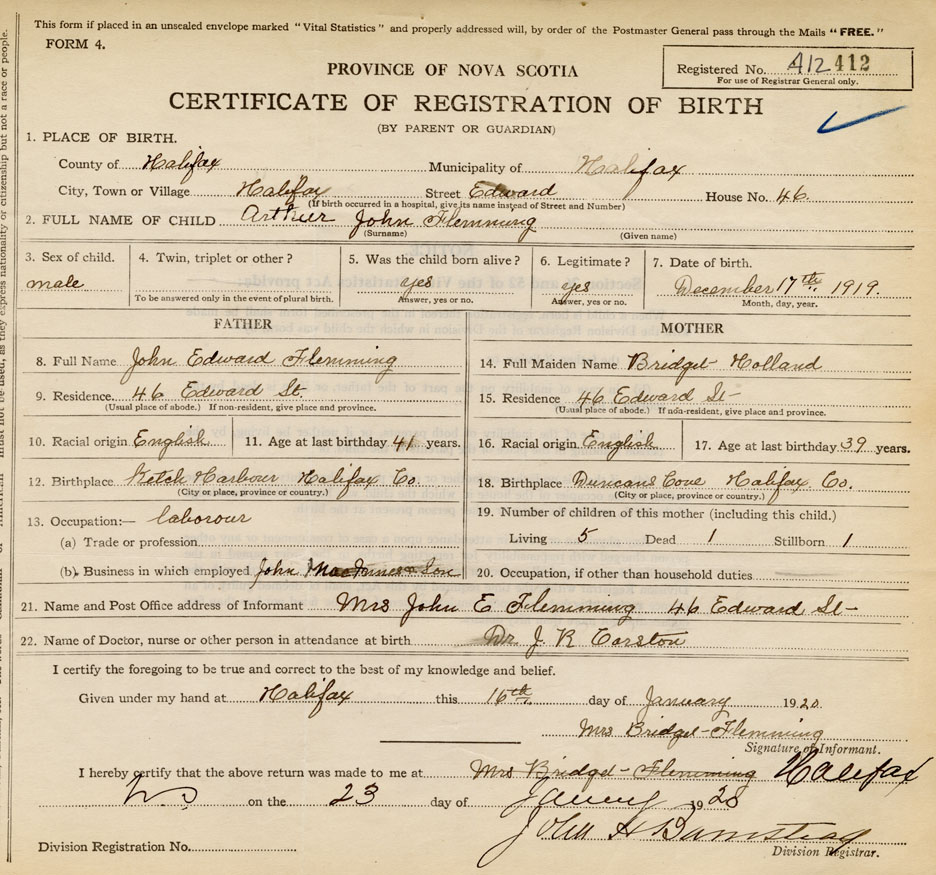 This form if placed in an unsealed envelope marked "Vital Statistics" and properly addressed will, by order of the Postmaster General pass through the Mails "FREE."
FORM 4.
Registered No. 412 412
For use of Registrar General only.
PROVINCE OF NOVA SCOTIA
CERTIFICATE OF REGISTRATION OF BIRTH
(BY PARENT OR GUARDIAN)
1. PLACE OF BIRTH.
County of Halifax Municipality of Halifax
City, Town or Village Halifax Street Edward House No. 46.
(If birth occurred in a hospital, give its name instead of Street and Number)
2. FULL NAME OF CHILD Arthur John Flemming
(Surname) (Given name)
3. Sex of child. 4. Twin, triplet or other ? 5. Was the child born alive ? 6. Legitimate ? 7. Date of birth.
male yes yes December 17th 1919.
To be answered only in the event of plural birth. Answer, yes or no. Answer, yes or no. Month, day, year.
FATHER MOTHER
8. Full Name John Edward Flemming 14. Full Maiden Name Bridget Holland
9. Residence. 46 Edward St. 15. Residence 46 Edward St
(Usual place of abode.) If non-resident, give place and province. (Usual place of abode.) If non-resident, give place and province.
10. Racial origin English 11. Age at last birthday 41 years. 16. Racial origin English 17. Age at last birthday 39 years.
12. Birthplace Ketch Harbour Halifax Co. 18. Birthplace Duncans Cove Halifax Co.
(City or place, province or country.) (City or place, province or country.)
13. Occupation:— laborour 19. Number of children of this mother (including this child.)
(a) Trade or profession Living 5 Dead 1 Stillborn 1
(b) Business in which employed John & Son 20. Occupation, if other than household duties
21. Name and Post Office address of Informant Mrs John E Flemming 46 Edward St
22. Name of Doctor, nurse or other person in attendance at birth Dr. J. R Corston
I certify the foregoing to be true and correct to the best of my knowledge and belief.
Given under my hand at Halifax this 16th day of January 1920
Mrs Bridget Flemming
Signature of Informant.
I hereby certify that the above return was made to me at Mrs Bridget Flemming Halifax
on the 23 day of January 1920
John H
Division Registration No. Division Registrar.